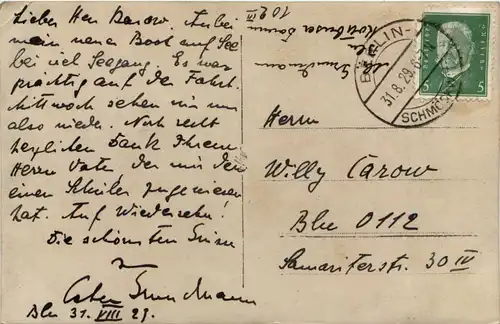 Lieber Herr Carow. Anbei
mein neues Boot auf See
bei viel Seegang. Es war
prächtig auf der Fahrt.
Mittwoch sehen wir uns
also wieder. Noch recht
herzlichen Dank Ihrem
Herrn Vater, der mir den
einen Schüler zugewiesen
hat. Auf Wiedersehn!
Die schönsten Grüsse
Bln 31. VIII 29.
Bln
BERLIN-
31.8.29.
SCHMÖCK
5 5
Herrn
Willy Carow
Bln O112
Samariterstr. 30 IV